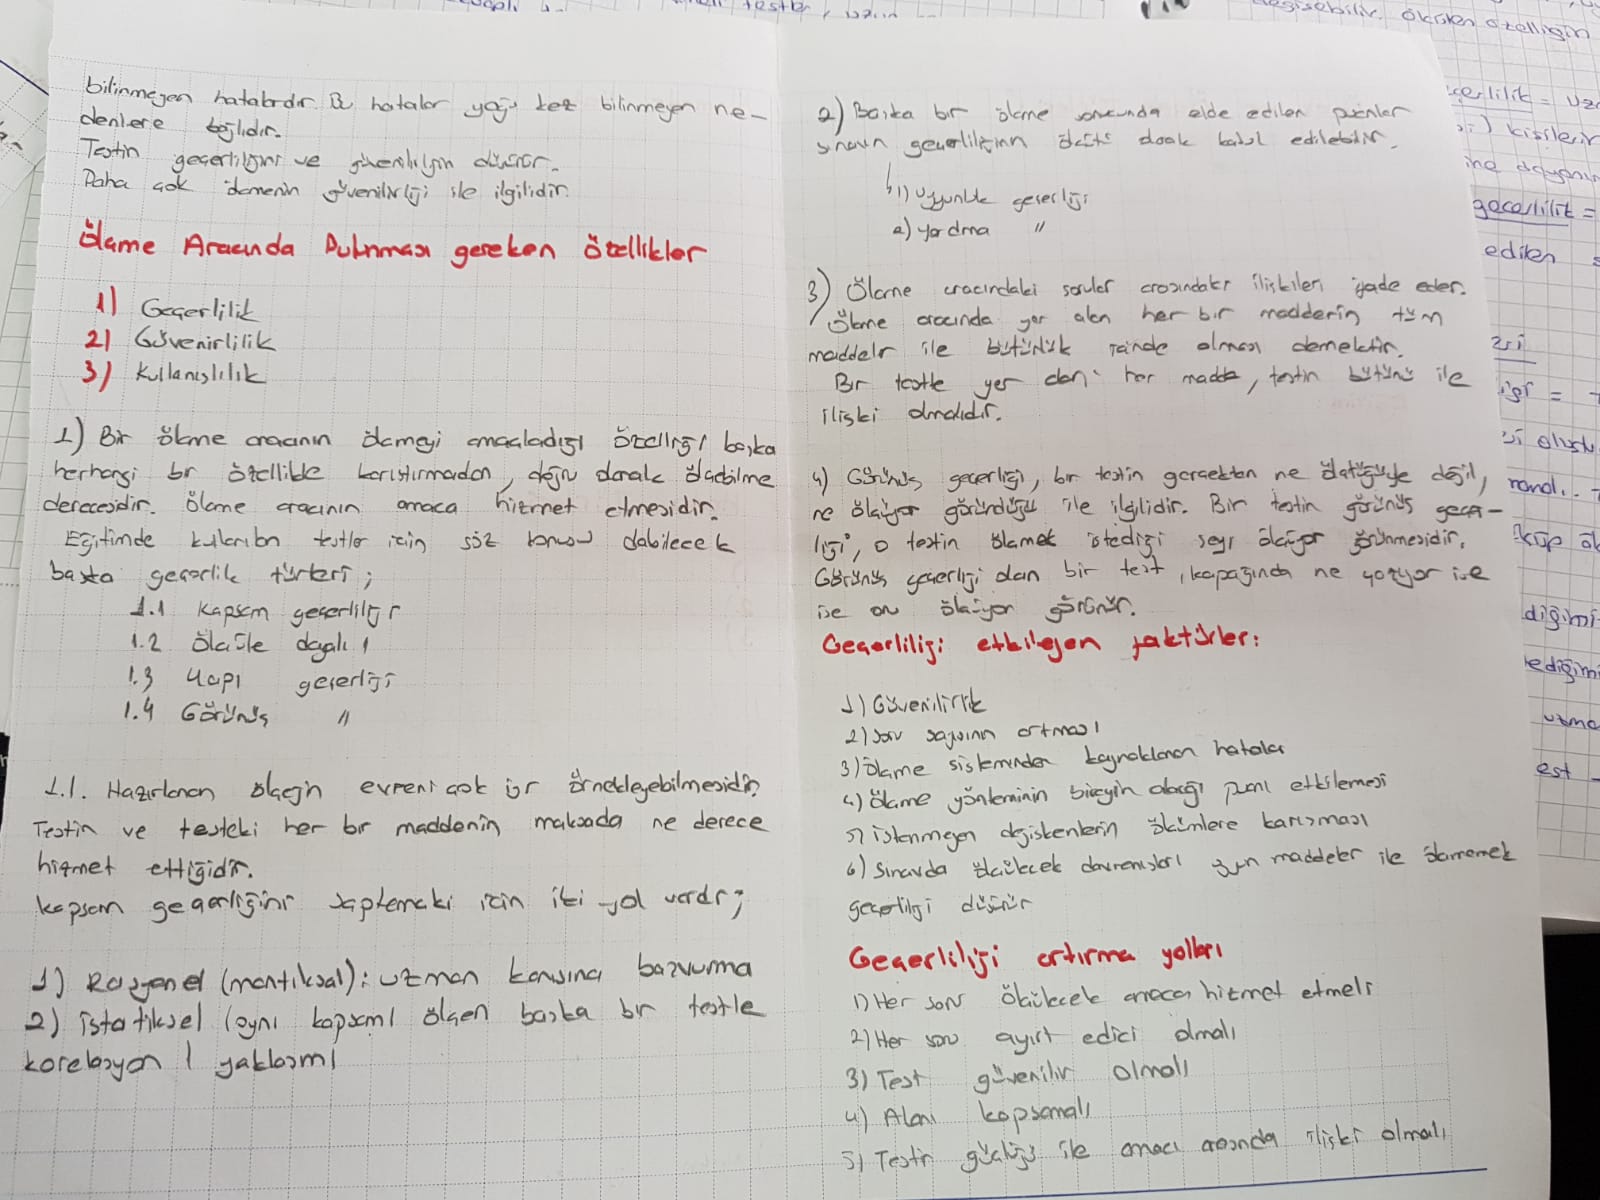 bilinmeyen hatalardır. Bu hatalar çoğu kez bilinmeyen ne-
denlere bağlıdır.
Testin geçerliliğini ve güvenilirliğin düşürür.
Daha çok ölçmenin güvenirliği ile ilgilidir.
Ölçme Aracında Bulunması gereken özellikler
1) Geçerlilik
2) Güvenirlilik
3) Kullanışlılık
1) Bir ölçme aracının ölçmeyi amaçladığı özelliği başka
herhangi bir özellikle karıştırmadan, doğru olarak ölçebilme
derecesidir. Ölçme aracının amaca hizmet etmesidir.
Eğitimde kullanılan testler için söz konusu olabilecek
başka geçerlik türleri;
1.1 Kapsam geçerliliği
1.2 Ölçüte dayalı
1.3 Yapı geçerliği
1.4 Görünüş "
1.1. Hazırlanan ölçeğin evreni çok iyi örnekleyebilmesidir.
Testin ve testeki her bir maddenin maksada ne derece
hizmet ettiğidir.
Kapsam geçerliğini saptamaki için iki yol vardır;
1) Rasyonel (mantıksal): uzman kanısına başvurma
2) İstatiksel (aynı kapsamı ölçen başka bir testle
korelasyon) yaklaşımı
2) Başka bir ölçme sonucunda elde edilen puanlar
sınavın geçerliliğinin ölçütü olarak kabul edilebilir.
1) Uygunluk geçerliği
2) yordma "
3) Ölçme aracındaki sorular arasındaki ilişkileri ifade eder.
Ölçme aracında yer alan her bir maddenin tüm
maddeler ile bütünlük içinde olması demektir.
Bir testte yer alan her madde, testin bütünü ile
ilişki olmalıdır.
4) Görünüş geçerliği, bir testin gerçekten ne ölçtüğüyle değil,
ne ölçüyor göründüğü ile ilgilidir. Bir testin görünüş geçer-
liği, o testin ölçmek istediği şeyi ölçüyor görünmesidir.
Görünüş geçerliği olan bir test, kapağında ne yazıyor ise
ise onu ölçüyor görünür.
Geçerliliği etkileyen faktörler:
1) Güvenilirlik
2) Soru sayısının artması
3) Ölçme sisteminden kaynaklanan hatalar
4) Ölçme yönteminin bireyin alacağı puanı etkilemesi
5) İstenmeyen değişkenlerin ölçümlere karışması
6) Sınavda ölçülecek davranışları uygun maddeler ile ölçmemek
geçerliliği düşürür
Geçerliliği artırma yolları
1) Her soru ölçülecek amaca hizmet etmeli
2) Her soru ayırt edici olmalı
3) Test güvenilir olmalı
4) Alanı kapsamalı
5) Testin güçlüğü ile amacı arasında ilişki olmalı
değişebilir. ölçülen özelliğin
kişilerin
geçerlilik =
edilen